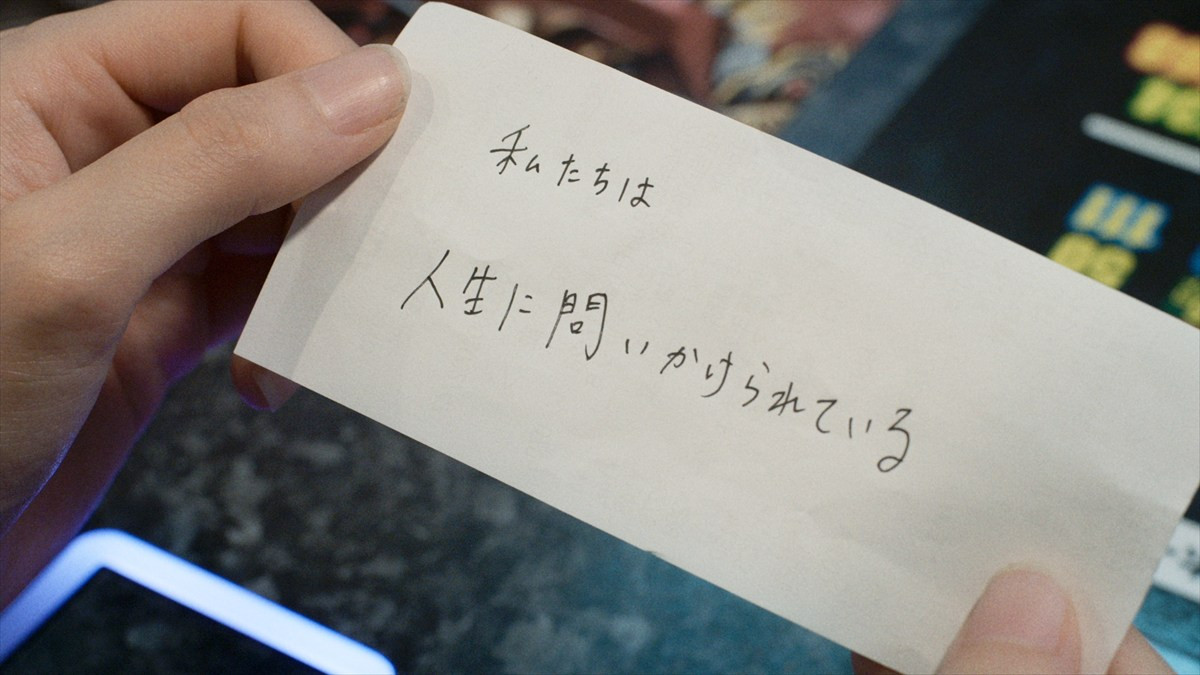 私たちは
人生に問いかけられている